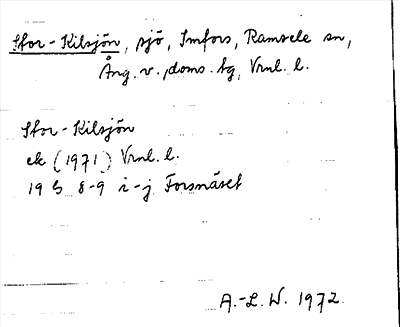 Stor-Kilsjön, sjö, Imfors, Ramsele sn,
Ång. v. doms. tg, Vrnl. l.
Stor-Kilsjön
ek (1971) Vrnl. l.
19 G 8-9 i-j Forsnäset
A.-L. W. 1972.